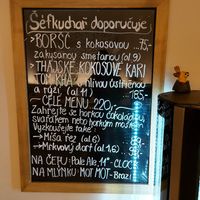 Šéfkuchař doporučuje
>BORŠČ s kokosovou ...75,-
zakysanou smetanou (al.9)
>THAJSKÉ KOKOSOVÉ KARI
TOM KHA ústřičnou
a rýží (al. 11) ...185,-
- CELÉ MENU 220,-
Zahřejte se horkou čokoládou,
svařákem nebo horkým moštem
Vyzkoušejte také:
→ Míša řez (al.6)
→ Mrkvový dort (al.1,6)
NA ČEPU: Pale Ale 11° - CLOCK
NA MLÝNKU MOTMOT - Brazi